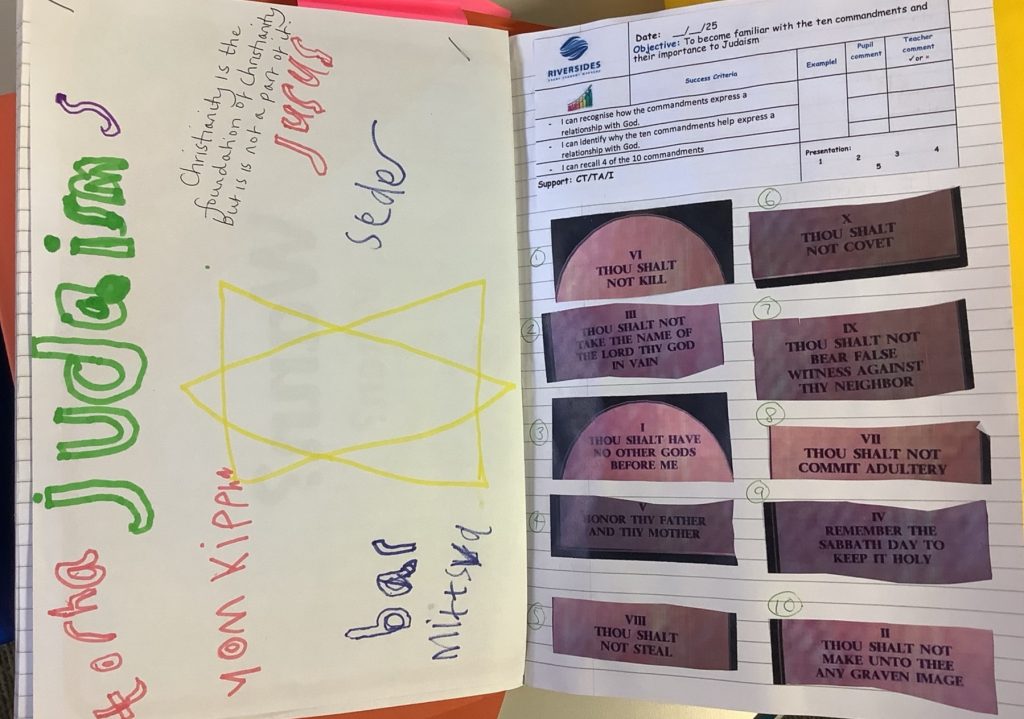 judaims
torha
yom Kippha
bar
Mittsva
seder
Christianity is the
foundation of Christianity
but is is not a part of it!
Jusus
RIVERSIDES
Date: __/__/25
Objective: To become familiar with the ten commandments and
their importance to Judaism
Success Criteria
Example!
Pupil
comment
Teacher
comment
✓ or ×
- I can recognise how the commandments express a
relationship with God.
- I can identify why the ten commandments help express a
relationship with God.
- I can recall 4 of the 10 commandments
Presentation:
1 2 3 4
5
Support: CT/TA/I
1
VI
THOU SHALT
NOT KILL
2
III
THOU SHALT NOT
TAKE THE NAME OF
THE LORD THY GOD
IN VAIN
3
I
THOU SHALT HAVE
NO OTHER GODS
BEFORE ME
4
V
HONOR THY FATHER
AND THY MOTHER
5
VIII
THOU SHALT
NOT STEAL
6
X
THOU SHALT
NOT COVET
7
IX
THOU SHALT NOT
BEAR FALSE
WITNESS AGAINST
THY NEIGHBOR
8
VII
THOU SHALT NOT
COMMIT ADULTERY
9
IV
REMEMBER THE
SABBATH DAY TO
KEEP IT HOLY
10
II
THOU SHALT NOT
MAKE UNTO THEE
ANY GRAVEN IMAGE